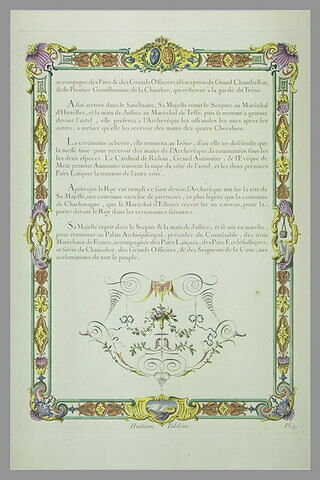 accompagné des Pairs & des Grands Officiers à l'exception du Grand Chambellan,
& du Premier Gentilhomme de la Chambre, qui resterent à la garde du Trône.
A son arrivée dans le Sanctuaire, Sa Majesté remit le Sceptre au Maréchal
d'Huxelles, et la main de Justice au Maréchal de Tessé, puis se mettant à genoux
devant l'autel, elle présenta à l'Archevêque les offrandes les unes après les
autres, à mesure qu'elle les recevoit des mains des quatre Chevaliers.
La cérémonie achevée, elle retourna au Trône, d'où elle ne descendit que
la messe finie, pour recevoir des mains de l'Archevêque, la communion sous les
les deux espèces. Le Cardinal de Rohan, Grand Aumônier, & l'Évêque de
Metz premier Aumônier tenoient la nape du côté de l'autel, et les deux premiers
Pairs Laïques la tenoient de l'autre côté.
Après que le Roy eut rempli ce saint devoir, l'Archevêque mit sur la tête de
Sa Majesté, une couronne enrichie de pierreries, et plus légère que la couronne
de Charlemagne, que le Maréchal d'Estrées reçut sur un carreau, pour la
porter devant le Roy dans les cérémonies suivantes.
Sa Majesté reprit alors le Sceptre & la main de Justice, et se mit en marche,
pour retourner au Palais Archiépiscopal, précédée du Connétable, des trois
Maréchaux de France, accompagnée des Pairs Laïques, des Pairs Ecclésiastiques,
et suivie du Chancelier, des Grands Officiers, & des Seigneurs de la Cour, aux
acclamations de tout le peuple.
Huitième Tableau Pl.